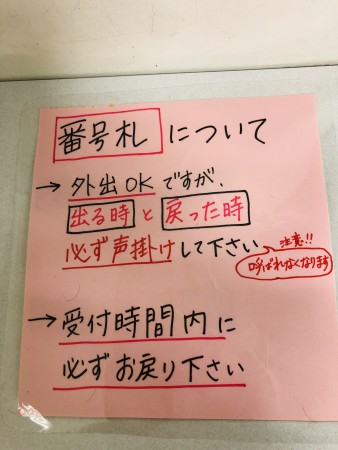 番号札について
→ 外出OKですが、
出る時と戻った時
必ず声掛けして下さい
注意!!
呼ばれなくなります
→ 受付時間内に
必ずお戻り下さい